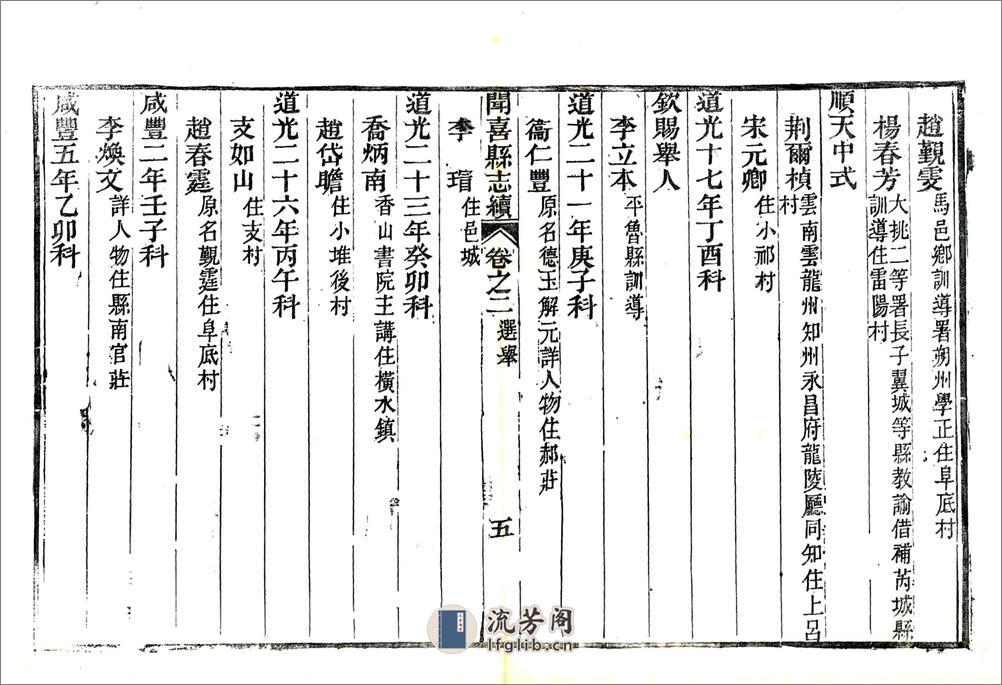 趙覲雯 馬邑鄉訓導署朔州學正住阜底村
楊春芳 大挑二等署長子翼城等縣教諭借補芮城縣訓導住雷陽村
順天中式
荆爾楨 雲南雲龍州知州永昌府龍陵廳同知住上呂村
宋元卿 住小祁村
道光十七年丁酉科
欽賜舉人
李立本 平魯縣訓導
道光二十一年庚子科
衞仁豐 原名德玉解元詳人物住郝莊
聞喜縣志續 卷之二 選舉 五
李瑨 住邑城
道光二十三年癸卯科
喬炳南 香山書院主講住橫水鎮
趙岱瞻 住小堆後村
道光二十六年丙午科
支如山 住支村
趙春霆 原名覲霆住阜底村
咸豐二年壬子科
李煥文 詳人物住縣南官莊
咸豐五年乙卯科
流芳阁
lfglib.cn